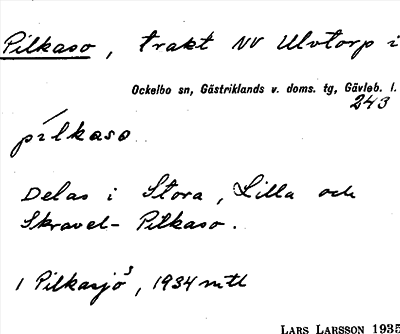 Pilkaso, trakt NV Ulvtorp i
Ockelbo sn, Gästriklands v. doms. tg, Gävleb. l.
243
pílkaso
Delas i Stora, Lilla och
Skravel-Pilkaso.
1 Pilkasjö³, 1934 mtl
LARS LARSSON 1935